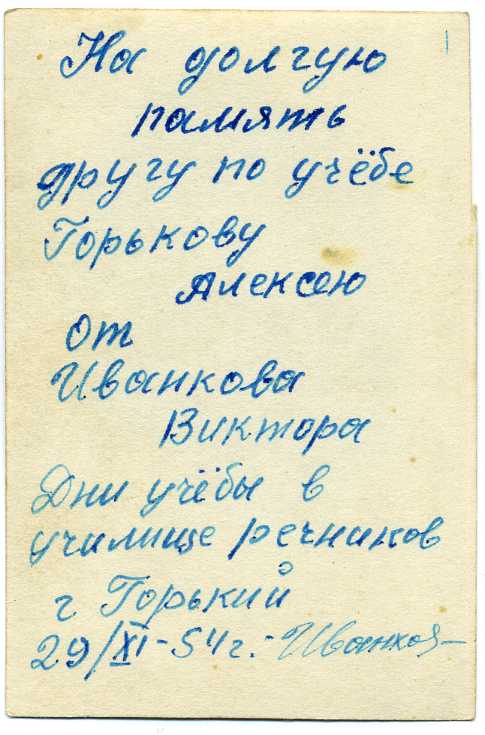 На долгую
память
другу по учёбе
Горькову
Алексею
от
Иванкова
Виктора
Дни учёбы в
училище речников
г Горький
29/XI-54г.-